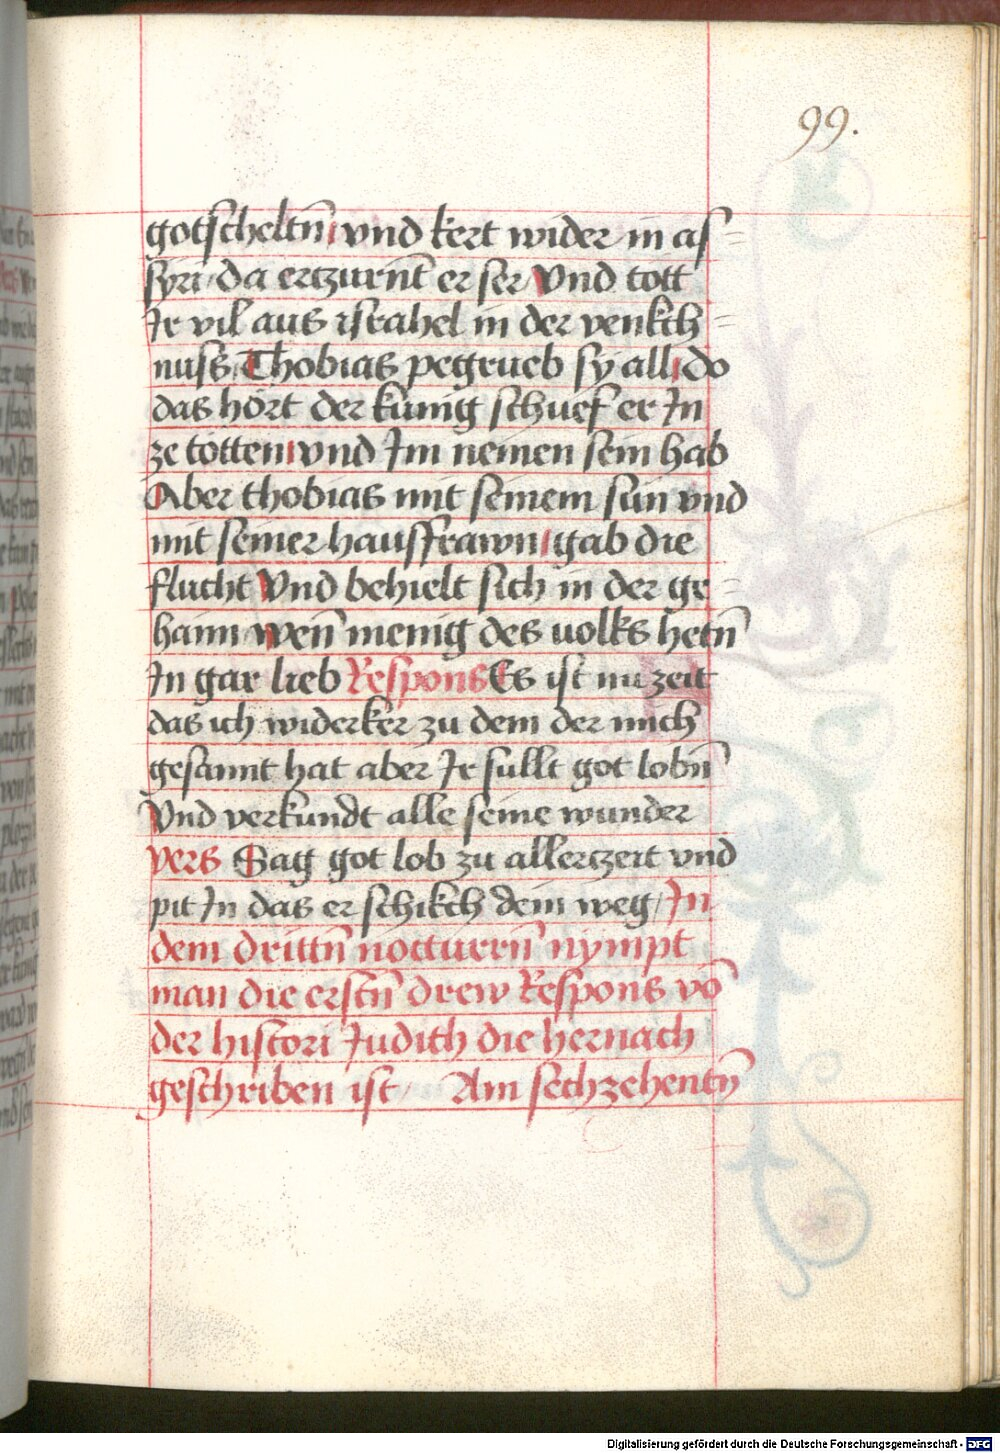 99.
gotscheltn̄ vnd kert wider in as=
syri / da erczurnt̄ er ser / Vnd tott
Ir vil aus israhel in der venkch=
nuss, Thobias pegrueb sy all, do
das hört der kunig schuef er In
ze totten vnd Im nemen sein hab
Aber thobias mit seinem sun vnd
mit seiner hausfrawn gab die
flucht Vnd behielt sich in der ge=
haim wen̄ menig des uolks hetn̄
In gar lieb Respons Es ist nu zeit
das ich widerker zu dem der mich
gesannt hat aber Ir sullt got lobn̄
Vnd verkundt alle seine wunder
vers Sag got lob zu allerczeit vnd
pit In das er schikch dein weg / In
dem drittn̄ notturrn̄ nympt
man die erstn̄ drew Respons vō
der histori Judith die hernach
geschriben ist / Am sechzehentn̄
Digitalisierung gefördert durch die Deutsche Forschungsgemeinschaft - DFG